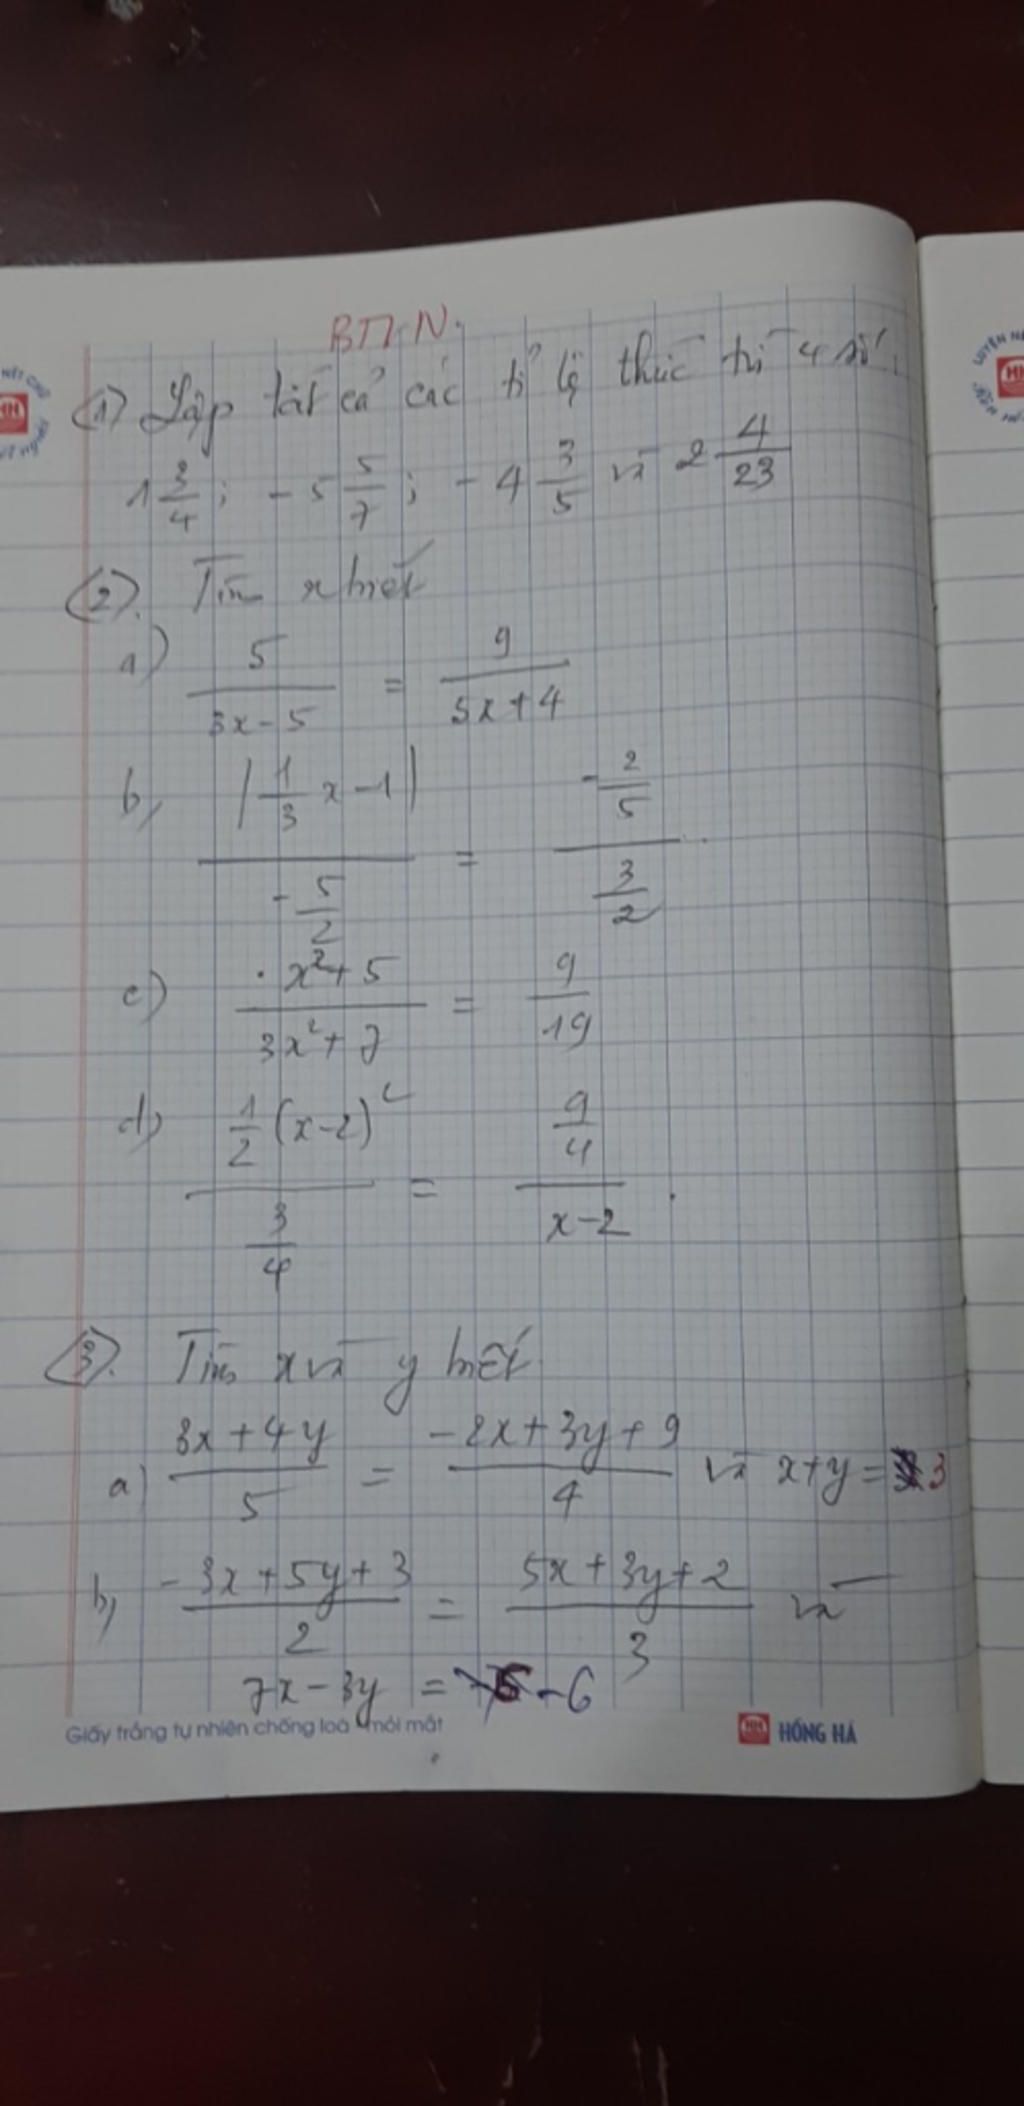 BTVN.
(1) Lập tất cả các tỉ lệ thức từ 4 số.
1 3/4 ; - 5 5/7 ; - 4 3/5 và 2 4/23
(2). Tìm x biết
a) 5/(3x - 5) = 9/(5x + 4)
b, |1/3 x - 1| / (- 5/2) = (- 2/5) / (3/2)
c) (x² + 5)/(3x² + 7) = 9/19
d) 1/2 (x - 2)² / (3/4) = (9/4) / (x - 2).
(3). Tìm x và y biết
a) (3x + 4y)/5 = (-2x + 3y + 9)/4 và x + y = 3
b, (- 3x + 5y + 3)/2 = (5x + 3y + 2)/3 và
7x - 3y = -6
Giấy trắng tự nhiên chống loá mỏi mắt
HỒNG HÀ